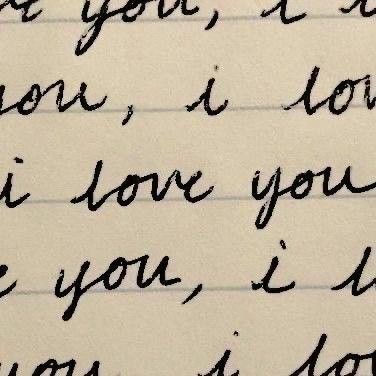 you, i
you, i lov
i love you
e you, i l
you i lo